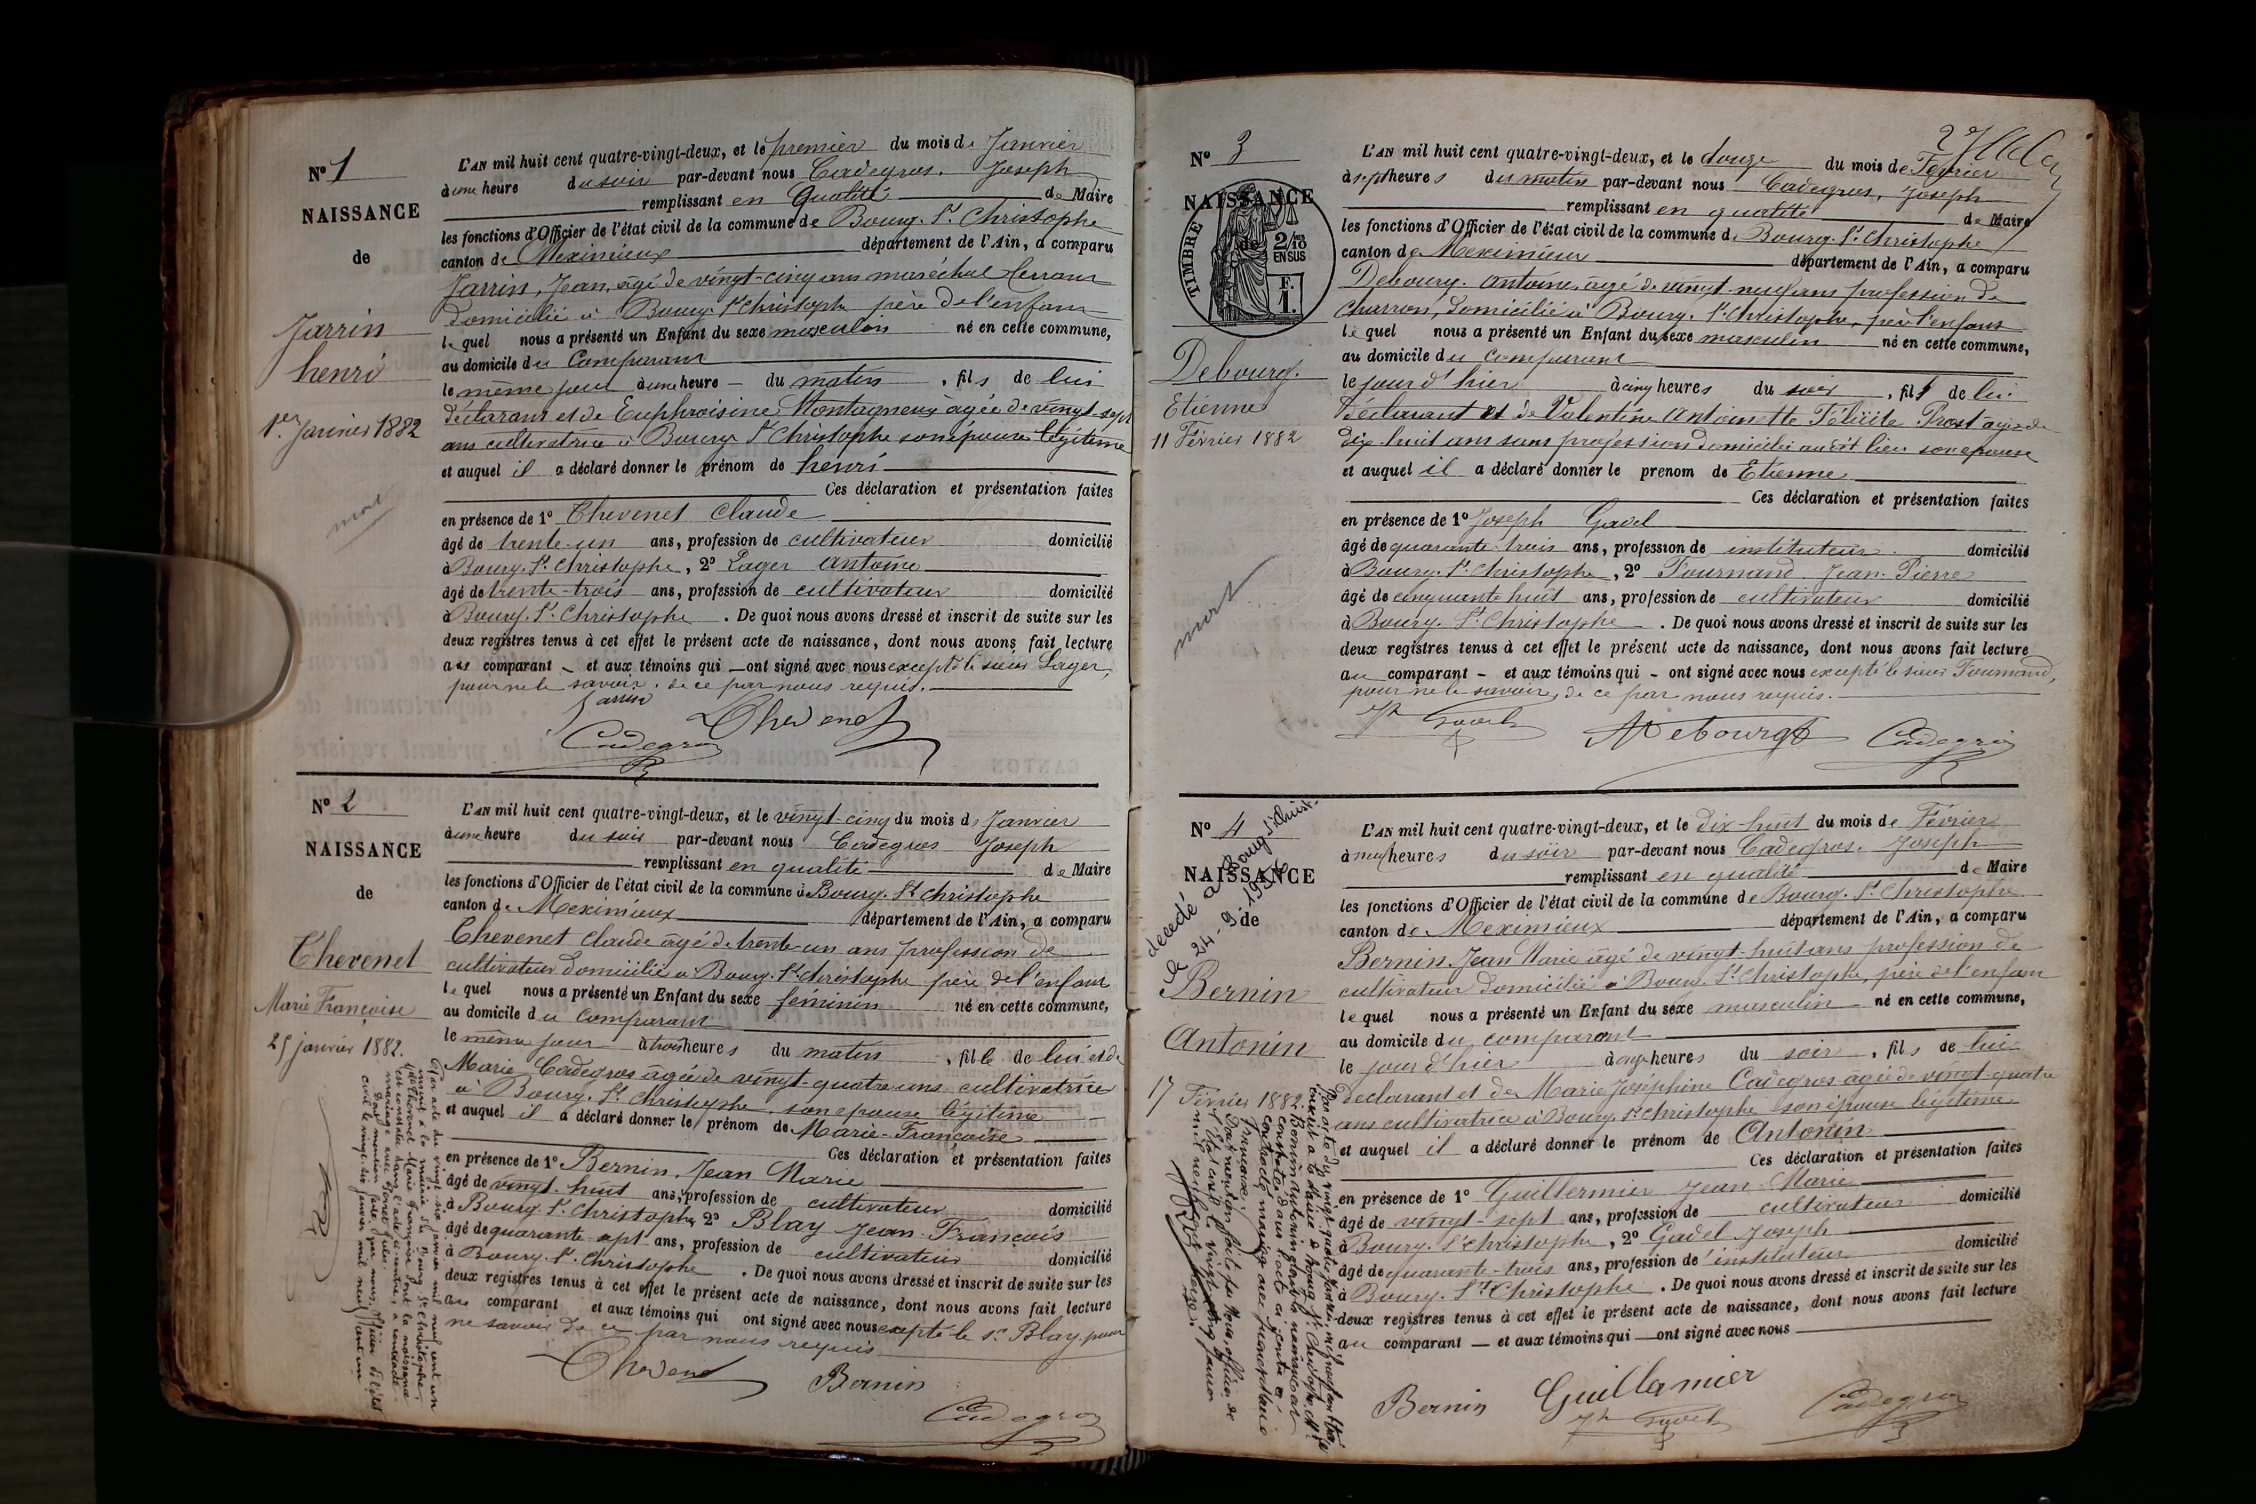 N° 1
NAISSANCE
de
Jarrin
henri
1er Janvier 1882
mort
L'AN mil huit cent quatre-vingt-deux, et le premier du mois de Janvier
à une heure du soir par-devant nous Cadegros, Joseph
remplissant en qualité de Maire
les fonctions d'Officier de l'état civil de la commune de Bourg-St-Christophe
canton de Meximieux département de l'Ain, a comparu
Jarrin, Jean, âgé de vingt-cinq ans maréchal ferrant
domicilié à Bourg-St-Christophe père de l'enfant
lequel nous a présenté un Enfant du sexe masculin né en cette commune,
au domicile du Comparant
le même jour à une heure du matin, fils de lui
déclarant et de Euphroisine Montagneux âgée de vingt-sept
ans cultivatrice à Bourg St Christophe son épouse légitime
et auquel il a déclaré donner le prénom de henri
Ces déclaration et présentation faites
en présence de 1° Chevenet Claude
âgé de trente-un ans, profession de cultivateur domicilié
à Bourg-St-Christophe, 2° Lager Antoine
âgé de trente-trois ans, profession de cultivateur domicilié
à Bourg-St-Christophe. De quoi nous avons dressé et inscrit de suite sur les
deux registres tenus à cet effet le présent acte de naissance, dont nous avons fait lecture
au comparant et aux témoins qui ont signé avec nous excepté le sieur Lager,
pour ne le savoir, de ce par nous requis.
Jarrin
Chevenet
Cadegros
N° 2
NAISSANCE
de
Chevenet
Marie Françoise
25 janvier 1882.
Par acte du vingt six janvier mil neuf cent un
inscrit à la mairie de Bourg St Christophe,
Chevenet Marie Françoise dont la naissance
est constatée dans l'acte ci-contre, a contracté
mariage avec
Dont mention faite par nous, officier de l'état
civil le vingt-six janvier mil neuf cent un
L'AN mil huit cent quatre-vingt-deux, et le vingt-cinq du mois de Janvier
à une heure du soir par-devant nous Cadegros Joseph
remplissant en qualité de Maire
les fonctions d'Officier de l'état civil de la commune de Bourg-St-Christophe
canton de Meximieux département de l'Ain, a comparu
Chevenet Claude âgé de trente-un ans profession de
cultivateur domicilié à Bourg-St-Christophe père de l'enfant
lequel nous a présenté un Enfant du sexe féminin né en cette commune,
au domicile du comparant
le même jour à trois heures du matin, fille de lui et de
Marie Cadegros âgée de vingt-quatre ans cultivatrice
à Bourg-St-Christophe, son épouse légitime
et auquel il a déclaré donner le prénom de Marie-Françoise
Ces déclaration et présentation faites
en présence de 1° Bernin, Jean Marie
âgé de vingt-huit ans, profession de cultivateur domicilié
à Bourg-St-Christophe 2° Blay Jean-François
âgé de quarante-sept ans, profession de cultivateur domicilié
à Bourg-St-Christophe. De quoi nous avons dressé et inscrit de suite sur les
deux registres tenus à cet effet le présent acte de naissance, dont nous avons fait lecture
au comparant et aux témoins qui ont signé avec nous excepté le sr Blay, pour
ne savoir de ce par nous requis
Chevenet
Bernin
Cadegros
N° 3
NAISSANCE
de
TIMBRE
2/10 EN SUS
F. 1.
Debourg.
Etienne
11 Février 1882
mort
L'AN mil huit cent quatre-vingt-deux, et le douze du mois de Février
à sept heures du matin par-devant nous Cadegros, Joseph
remplissant en qualité de Maire
les fonctions d'Officier de l'état civil de la commune de Bourg-St-Christophe
canton de Meximieux département de l'Ain, a comparu
Debourg, Antoine, âgé de vingt-neuf ans profession de
charron, domicilié à Bourg-St-Christophe, père l'enfant
lequel nous a présenté un Enfant du sexe masculin né en cette commune,
au domicile du comparant
le jour d'hier à cinq heures du soir, fils de lui
déclarant et de Valentine Antoinette Félicité Prost âgée de
dix-huit ans sans profession domiciliée au dit lieu son épouse
et auquel il a déclaré donner le prenom de Etienne
Ces déclaration et présentation faites
en présence de 1° Joseph Gavel
âgé de quarante-trois ans, profession de instituteur domicilié
à Bourg-St-Christophe, 2° Fournand Jean-Pierre
âgé de cinquante huit ans, profession de cultivateur domicilié
à Bourg-St-Christophe. De quoi nous avons dressé et inscrit de suite sur les
deux registres tenus à cet effet le présent acte de naissance, dont nous avons fait lecture
au comparant - et aux témoins qui - ont signé avec nous excepté le sieur Fournand,
pour ne le savoir, de ce par nous requis.
Jh Gavel
Debourg
Cadegros
N° 4
NAISSANCE
de
decedé à Bourg St Christ.
le 24-9-
Bernin
Antonin
17 Février 1882
Par acte du vingt-quatre Janvier mil neuf cent
inscrit à la Mairie de Bourg St Christophe, Mr
Bernin Antonin dont la naissance est
constatée dans l'acte ci-contre a
contracté mariage avec
Dont mention faite par Nous, officier de
l'Etat civil le vingt-cinq Janvier
L'AN mil huit cent quatre-vingt-deux, et le dix-huit du mois de Février
à neuf heures du soir par-devant nous Cadegros, Joseph
remplissant en qualité de Maire
les fonctions d'Officier de l'état civil de la commune de Bourg-St-Christophe
canton de Meximieux département de l'Ain, a comparu
Bernin Jean Marie âgé de vingt-huit ans profession de
cultivateur domicilié à Bourg-St-Christophe, père de l'enfant
lequel nous a présenté un Enfant du sexe masculin né en cette commune,
au domicile du comparant
le jour d'hier à onze heures du soir, fils de lui
déclarant et de Marie Joséphine Cadegros âgée de vingt-quatre
ans cultivatrice à Bourg-St-Christophe son épouse légitime
et auquel il a déclaré donner le prénom de Antonin
Ces déclaration et présentation faites
en présence de 1° Guillermier Jean-Marie
âgé de vingt-sept ans, profession de cultivateur domicilié
à Bourg-St-Christophe, 2° Gavel Joseph
âgé de quarante-trois ans, profession de instituteur domicilié
à Bourg-St-Christophe. De quoi nous avons dressé et inscrit de suite sur les
deux registres tenus à cet effet le présent acte de naissance, dont nous avons fait lecture
au comparant — et aux témoins qui — ont signé avec nous
Bernin
Guillermier
Jh Gavel
Cadegros